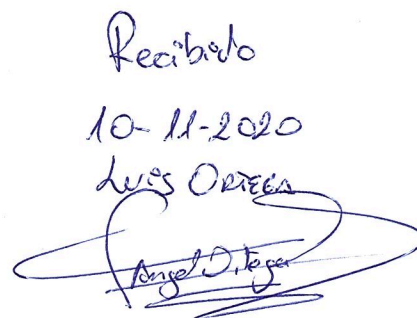 Recibido
10-11-2020
Luis ORTEGA
Angel